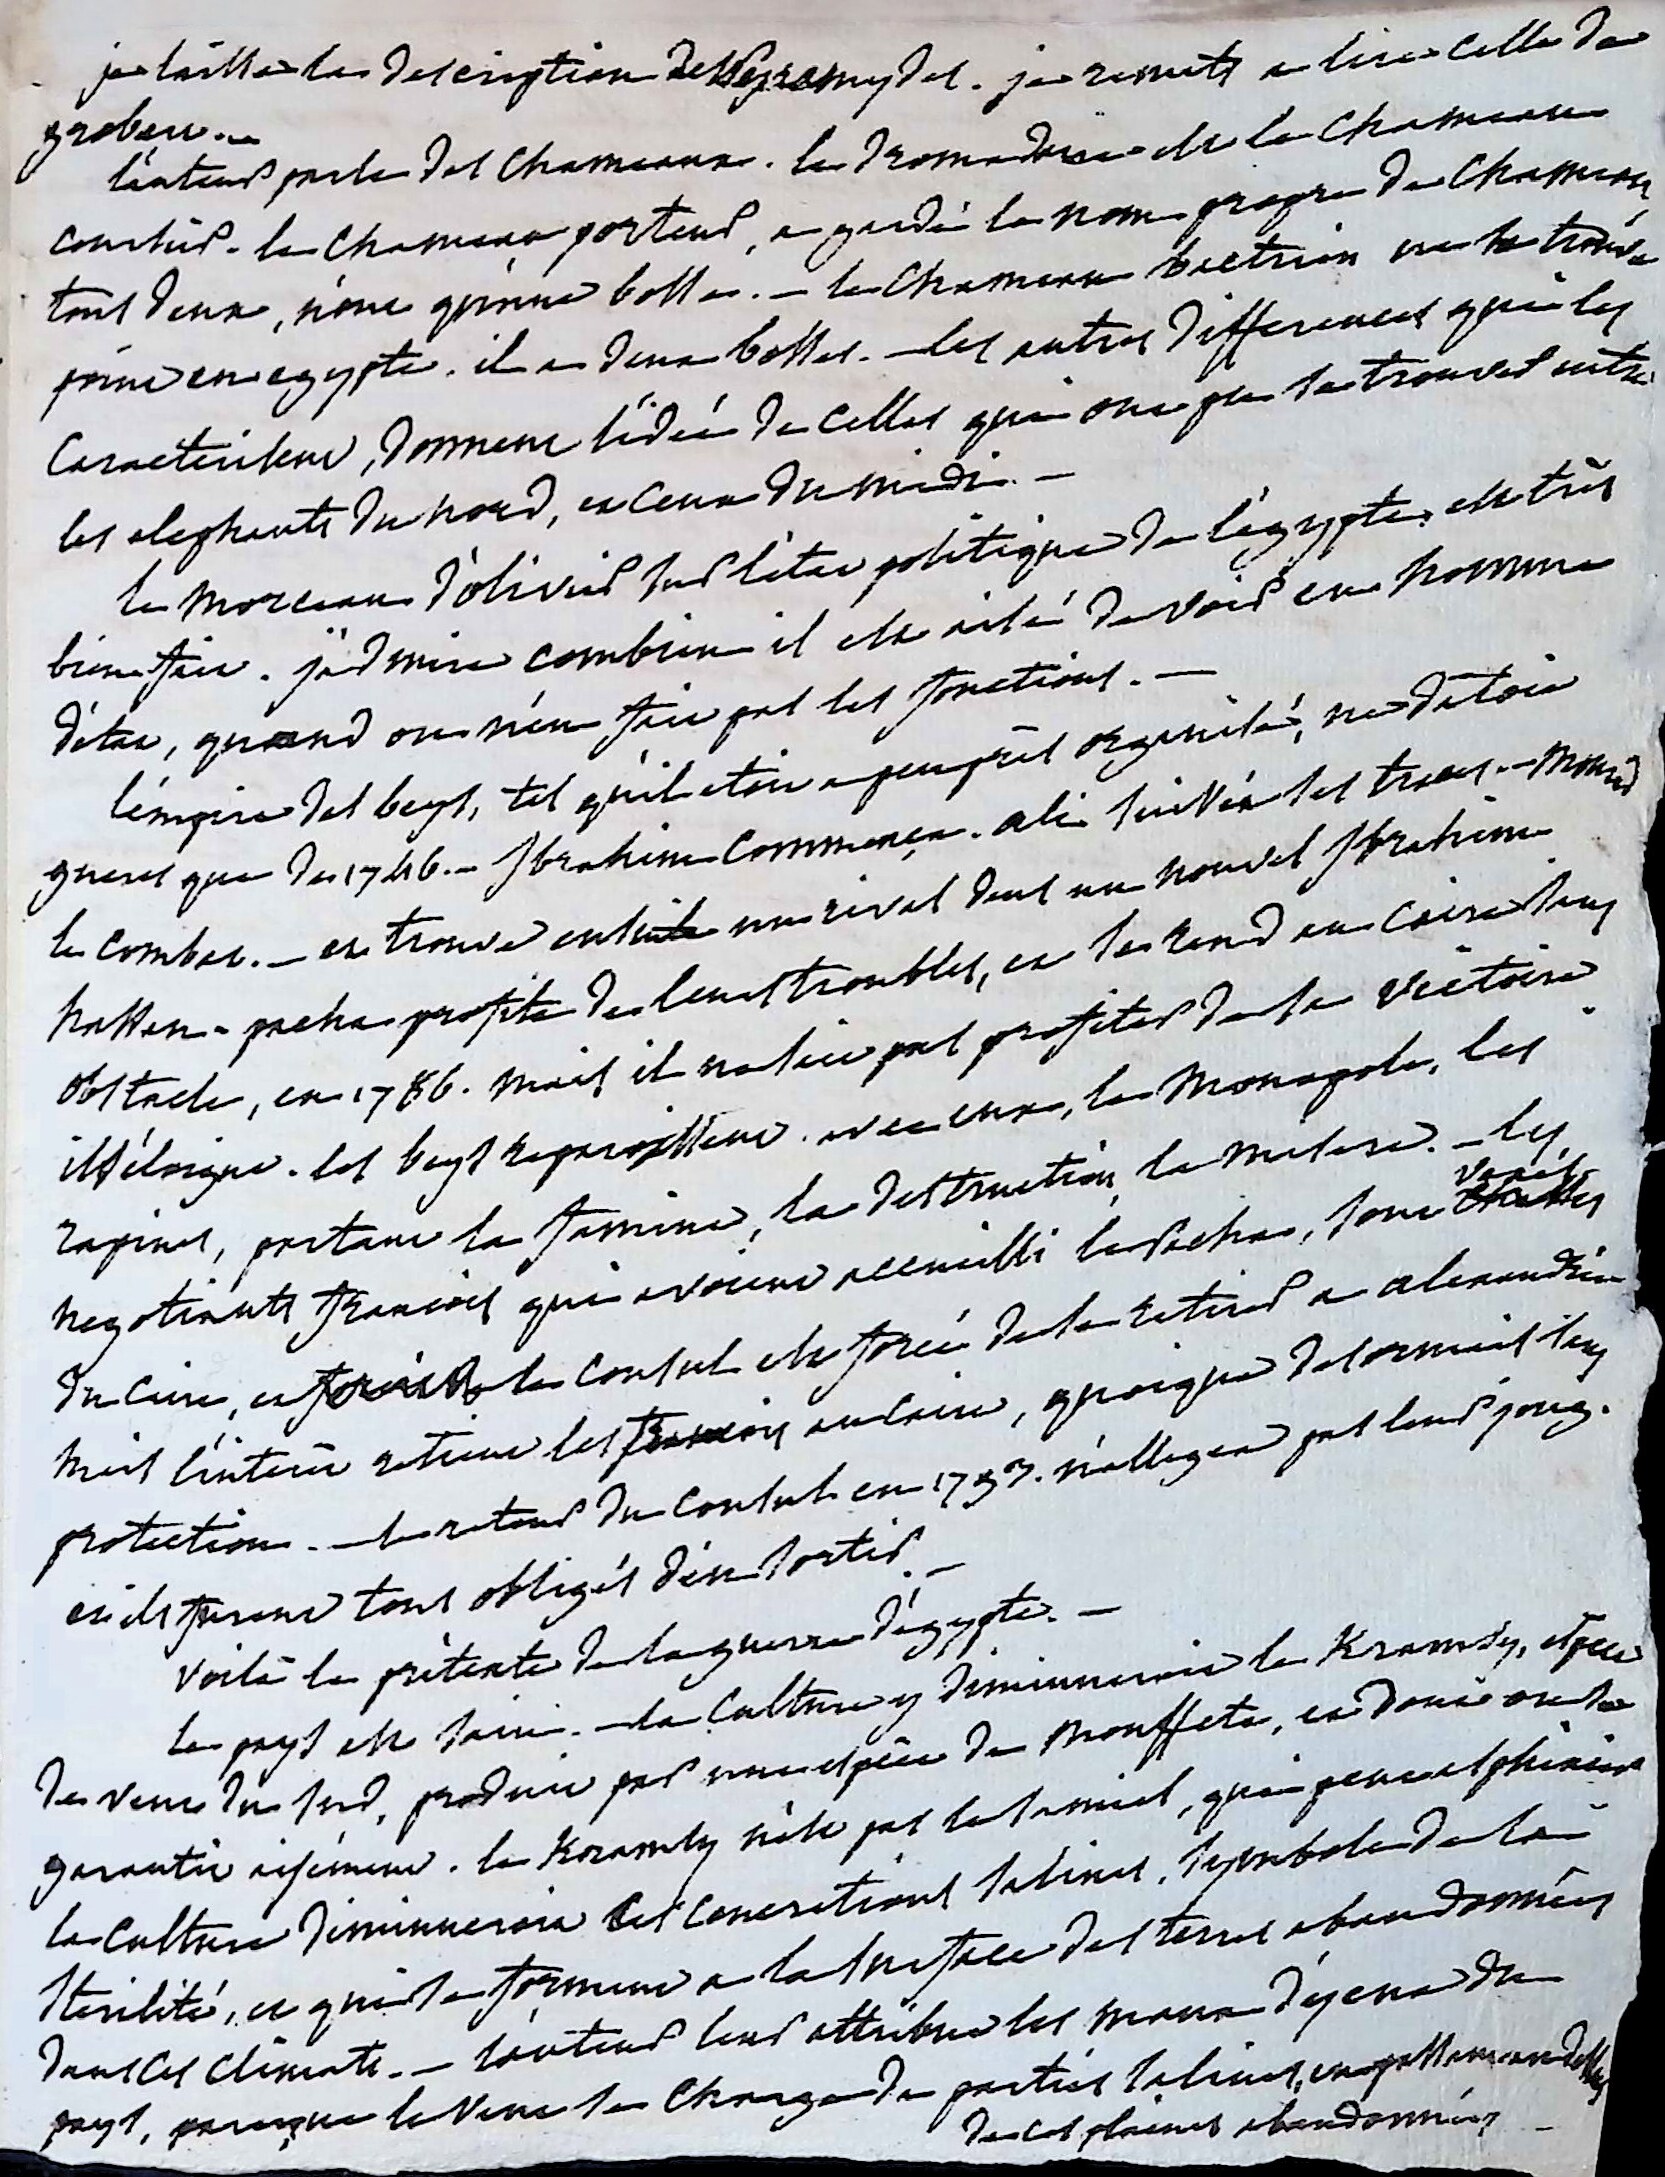 je laisse la description des pyramydes. je remets a lire celle de
grobert. —
l'auteur parle des chameaux. le dromadaire est le chameau
coursier. le chameau porteur, a gardé le nom propre de chameau,
tous deux, n'ont qu'une bosse. — le chameau bactrien ne se trouve
point en egypte. il a deux bosses. — les autres differences qui les
caracterisent, donnent l'idée de celles qui ont pu se trouver entre
les elephants du nord, et ceux du midi. —
le morceau d'olivier sur l'état politique de l'égypte, est très
bien fait. j'admire combien il est aisé de voir en homme
d'état, quand on n'en fait pas les fonctions. —
l'empire des beys, tel qu'il etoit a peu près organisé, ne datoit
gueres que de 1746. — Ibrahim commença. ali suivit ses traces. — Mourad
le combat. — et trouve ensuite un rival dans un nouvel Ibrahim
hassan-pacha profite de leurs troubles, et se rend au Caire sans
obstacle, en 1786. mais il ne sait pas profiter de sa victoire
il s'éloigne. les beys reparoissent. avec eux, le monopole, les
rapines, portant la famine, la destruction, la misere. — les
negotiants françois qui avoient accueilli le pacha, sont chassés
du Caire, et le consul est forcé de se retirer a alexandrie
mais l'intérêt retient les françois au Caire, quoique desormais sans
protection. — le retour du consul en 1797. n'allegea pas leur joug.
et ils furent tous obligés d'en sortir. —
voilà le prétexte de la guerre d'égypte. —
le pays est sain. — la culture y diminueroit le Kramsy, espece
de vent du sud, produit par une espèce de mouffete, et dont on se
garantit aisément. le Kramsy n'est pas le samiel, qui peut asphixier
la culture diminueroit ces concretions salines, symbole de la
sterilité, et qui se forment a la surface des terres abandonnées
dans ces climats. — l'auteur leur attribue les maux d'yeux du
pays, parceque le vent se charge de parties salines, en passant au dessus
de ces plaines abandonnées —